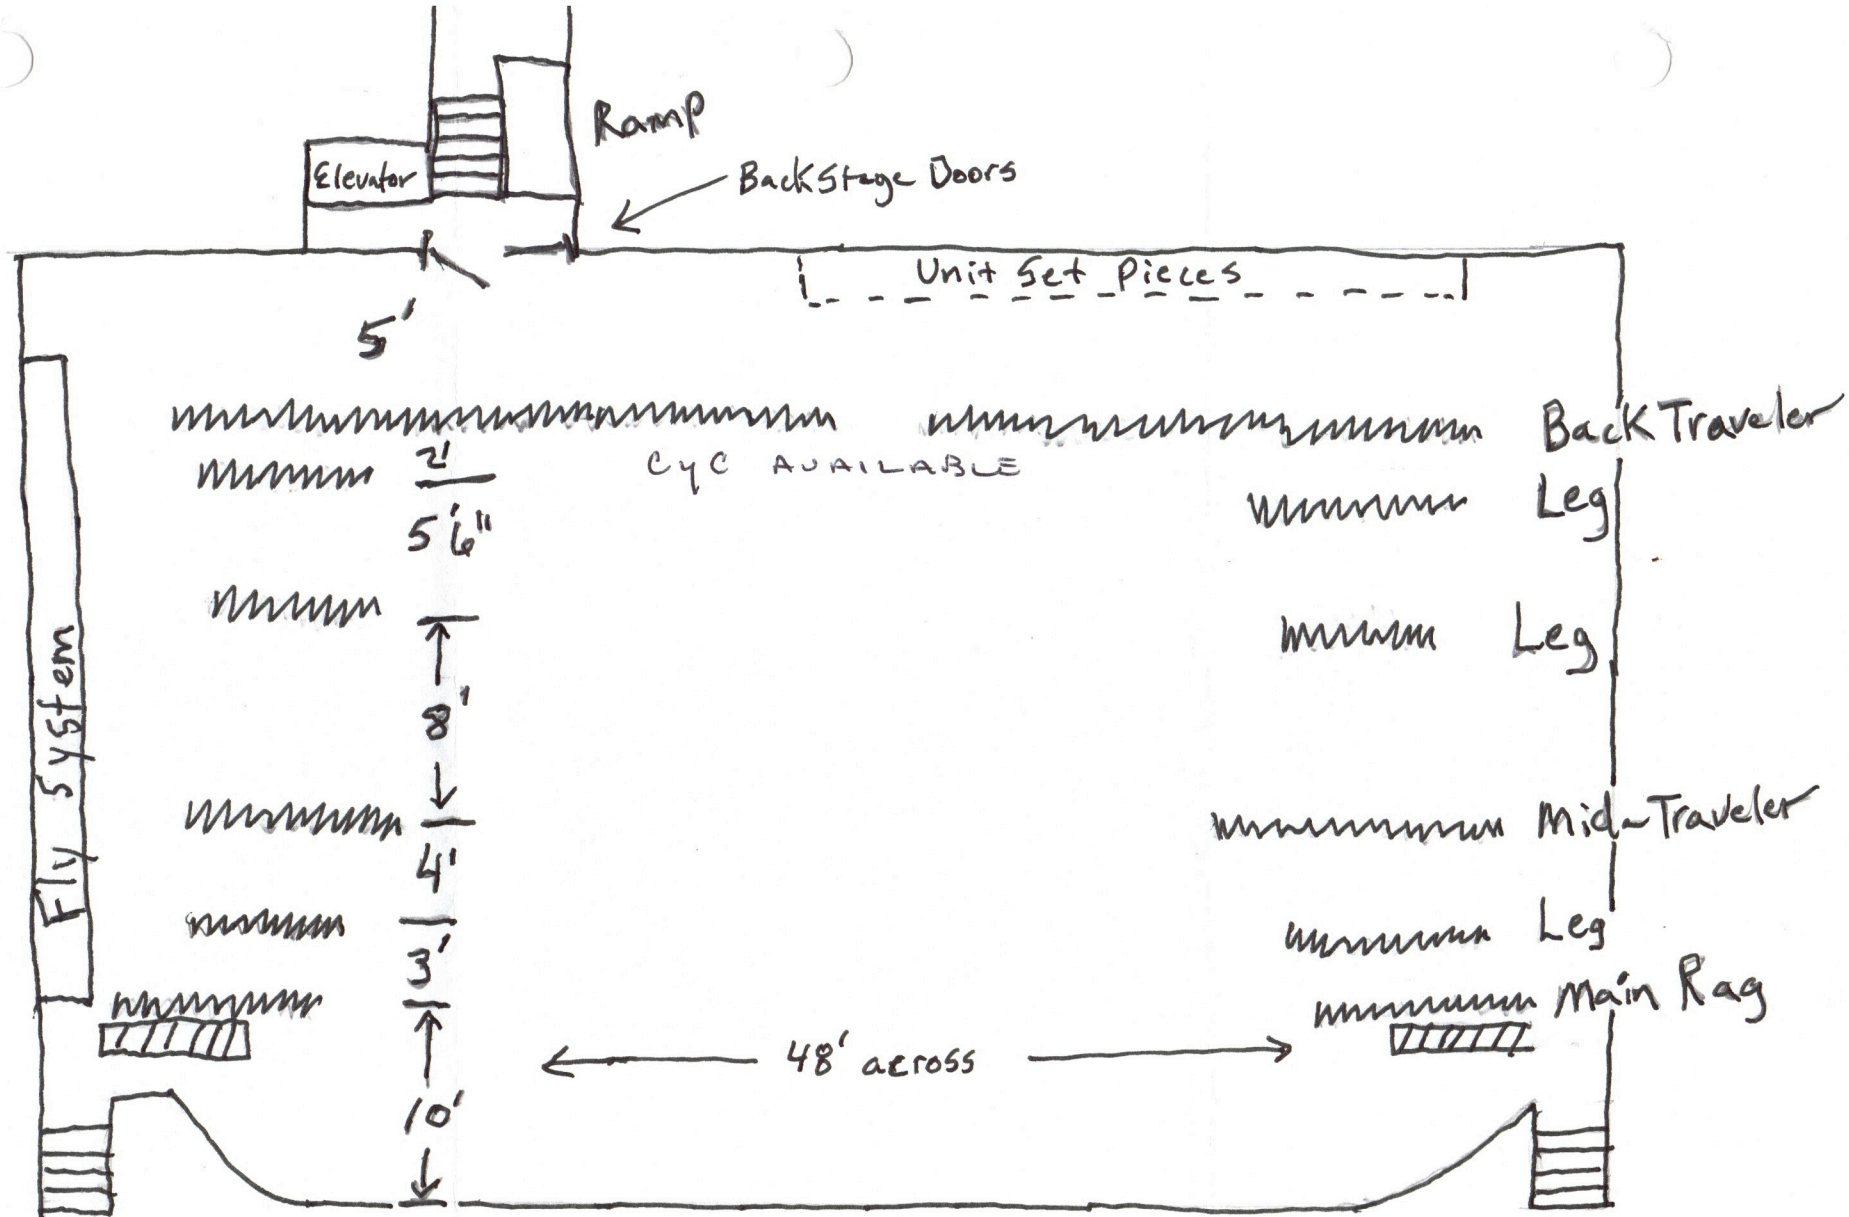 Ramp
Elevator
BackStage Doors
Unit Set Pieces
5'
Back Traveler
2'
CYC AVAILABLE
Leg
5'6"
Leg
Fly System
8'
Mid-Traveler
4'
Leg
3'
Main Rag
48' across
10'